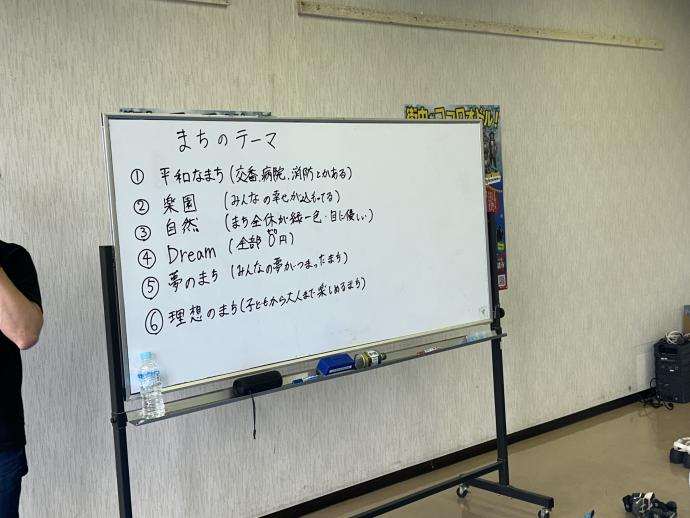 まちのテーマ
① 平和なまち(交番、病院、消防とかある)
② 楽園 (みんなの幸せが込もってる)
③ 自然 (まち全体が緑一色・目に優しい)
④ Dream (全部0円)
⑤ 夢のまち (みんなの夢がつまったまち)
⑥ 理想のまち(子どもから大人まで楽しめるまち)